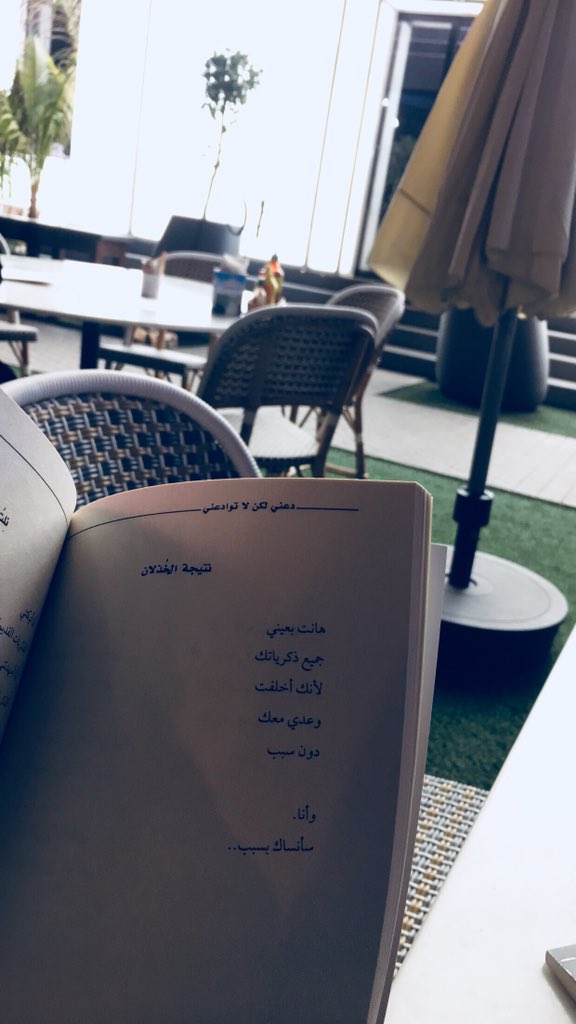 دعني لكن لا توادعني
نتيجة الخُذلان
هانت بعيني
جميع ذكرياتك
لأنك أخلفت
وعدي معك
دون سبب
وأنا.
سأنساك بسبب..